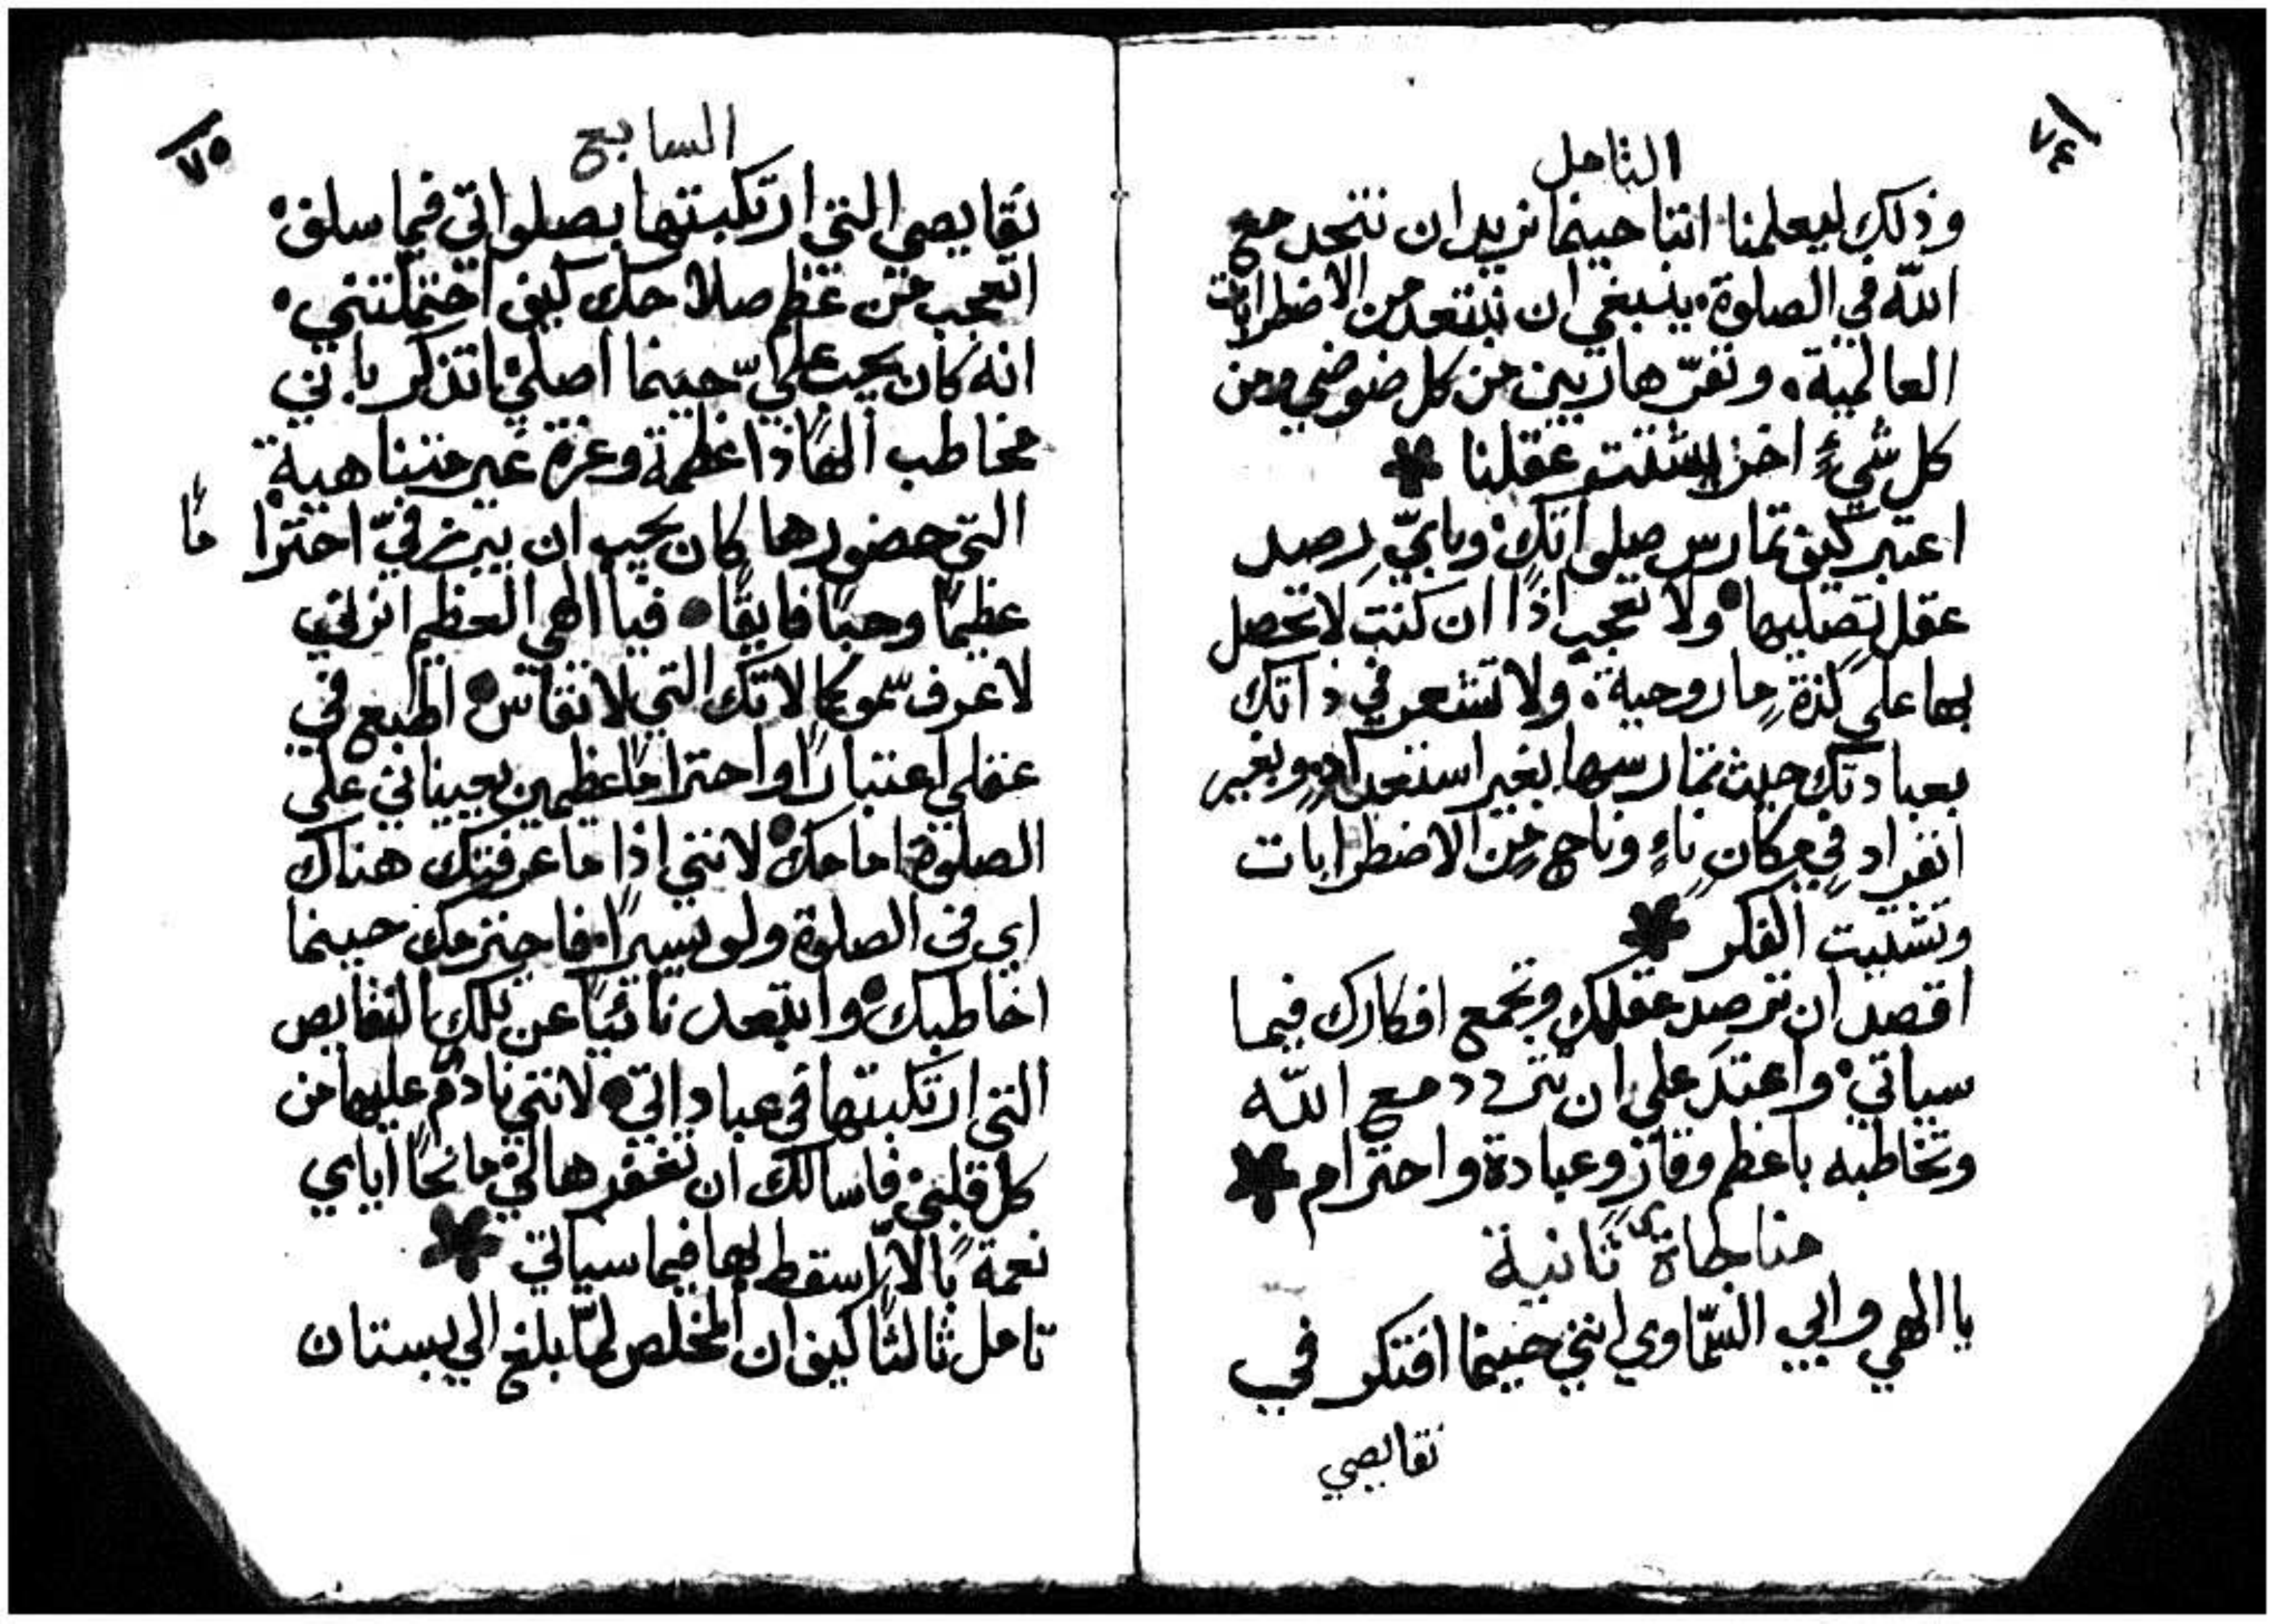 ٧٤
التامل
وذلك ليعلمنا اننا حينما نريد ان نتحد مع
اللّه في الصلوة. ينبغي ان نبتعد من الاضطرابات
العالمية. ونفرّ هاربين من كل ضوضي ومن
كل شيءٍ اخر يشتت عقلنا
اعتبر كيف تمارس صلواتك. وبايّ رصد
عقل تصليها. ولا تعجب اذًا ان كنت لا تحصل
بها على لذة ما روحية. ولا تشعر في ذاتك
بعبادتك حيث تمارسها بغير استعداد. وبغير
انفراد في مكان ناءٍ وناجٍ من الاضطرابات
وتشتيت الفكر
اقصد ان ترصد عقلك وتجمع افكارك فيما
سياتي. واعتد على ان تتردد مع اللّه
وتخاطبه باعظم وقارٍ وعبادة واحترام
مناجاة ثانية
يا الهي وابي السّماوي انني حينما افتكر في
نقايصي
٧٥
السابع
نقايصي التي ارتكبتها بصلواتي فيما سلف.
اتعجب من عظم صلاحك كيف احتملتني.
انه كان يجب عليّ حينما اصلي اتذكر باني
مخاطب الهًا ذا عظمة وعزة غير متناهية
التي حضورها كان يجب ان يبرز فيّ احترامًا
عظيمًا وحبًا فايقًا. فيا الهي العظيم انرني
لاعرف سمو كمالاتك التي لا تقاس. اطبع في
عقلي اعتبارًا واحترامًا عظيمين يعيناني على
الصلوة امامك. لانني اذا ما عرفتك هناك
اي في الصلوة ولو يسيرًا. فاحترمك حينما
اخاطبك. وابتعد نائيًا عن تلك النقايص
التي ارتكبتها في عباداتي. لانني نادمٌ عليها من
كل قلبي. فاسالك ان تغفرها لي مانحًا اياي
نعمة بالّا اسقط بها فيما سياتي
تامل ثالثًا كيف ان المخلص لمّا بلغ الي بستان